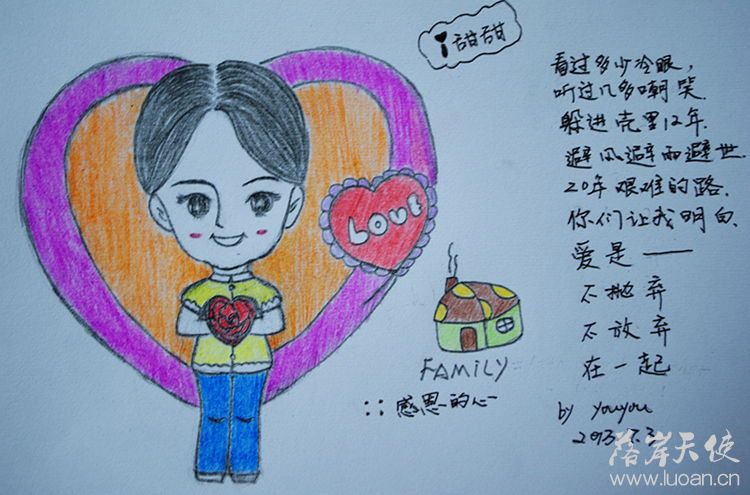 甜甜
看过多少冷眼，
听过几多嘲笑.
躲进壳里12年.
避风避雨避世.
20年艰难的路.
你们让我明白.
爱是——
不抛弃
不放弃
在一起
by youyou
2013.7.3
Love
FAMILY
::感恩的心
落岸天使
www.luoan.cn